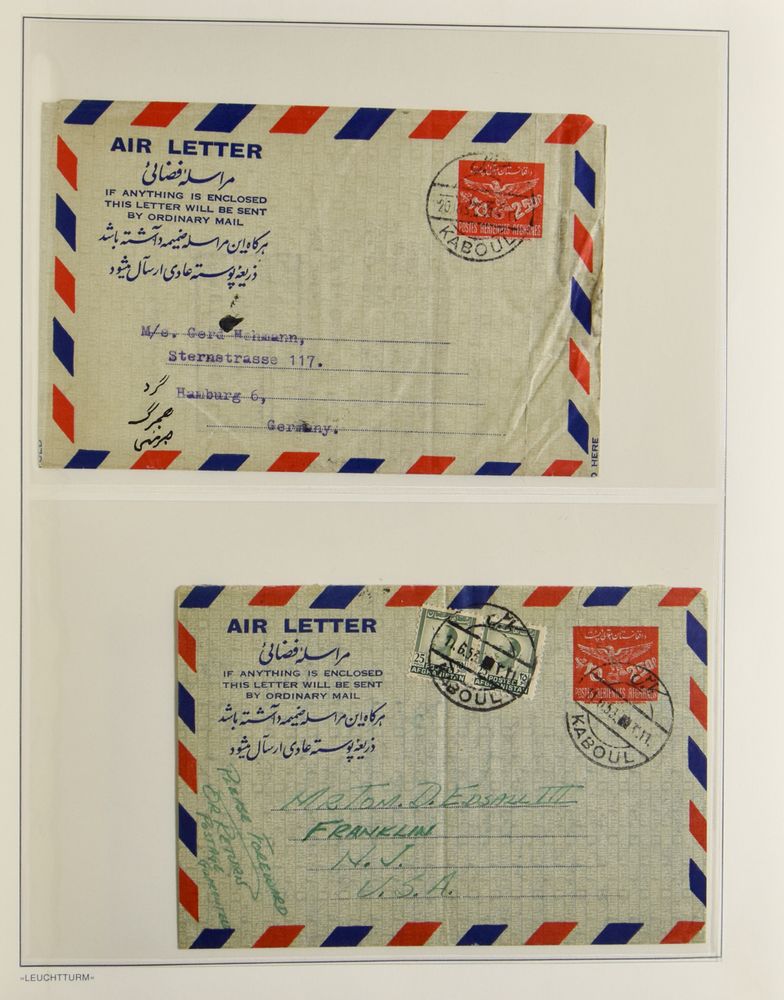 AIR LETTER
مراسلهٔ فضائی
IF ANYTHING IS ENCLOSED
THIS LETTER WILL BE SENT
BY ORDINARY MAIL
هرگاه این مراسله ضمیمه داشته باشد
ذریعهٔ پوسته عادی ارسال میشود
2.50
POSTES AERIENNES AFGHANES
KABOUL
Gerd Hohmann,
Sternstrasse 117.
Hamburg 6,
Germany.
D HERE
AIR LETTER
مراسلهٔ فضائی
IF ANYTHING IS ENCLOSED
THIS LETTER WILL BE SENT
BY ORDINARY MAIL
هرگاه این مراسله ضمیمه داشته باشد
ذریعهٔ پوسته عادی ارسال میشود
25
POSTES
AFGHANISTAN
KABOUL
POSTES AERIENNES AFGHANES
KABOUL
MR TOM. D. EDSALL III
FRANKLIN
N. J.
U.S.A.
PLEASE FOREWARD
OR RETURN
POSTAGE
GUARENTEED
»LEUCHTTURM«